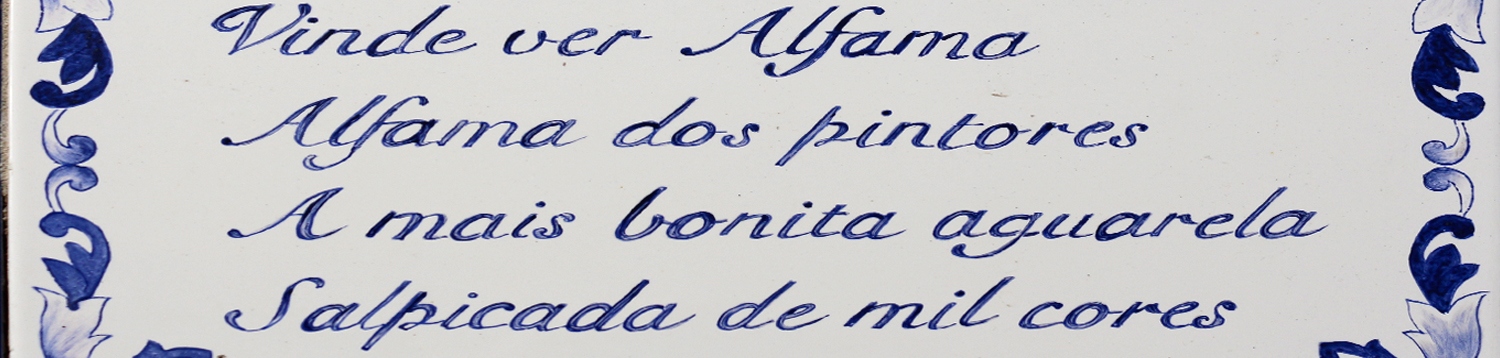 Vinde ver Alfama
Alfama dos pintores
A mais bonita aguarela
Salpicada de mil cores